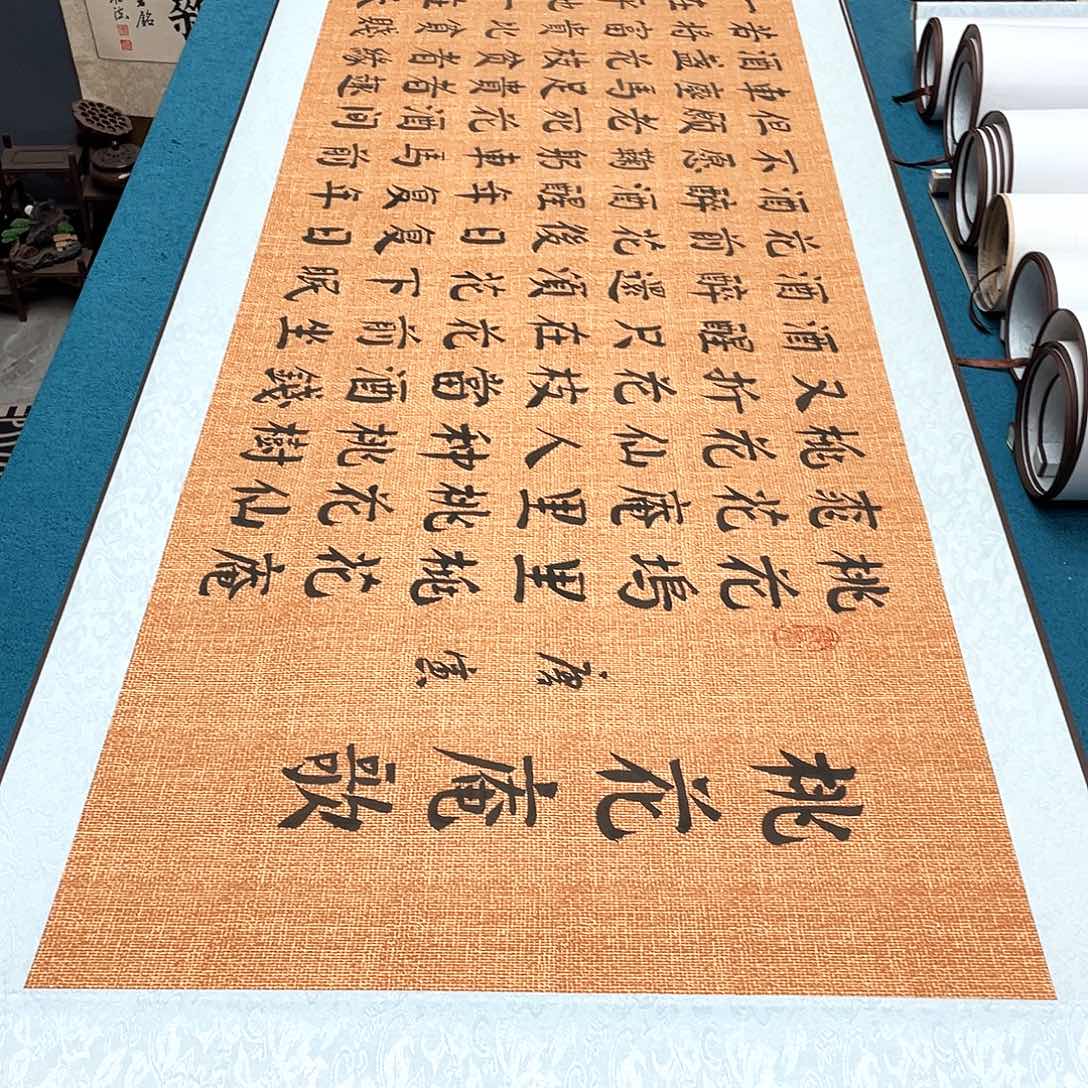 桃花庵歌
唐寅
桃花塢里桃花庵
桃花庵里桃花仙
桃花仙人种桃樹
又折花枝當酒錢
酒醒只在花前坐
酒醉還須花下眠
花前花後日复日
酒醉酒醒年复年
不愿鞠躬車馬前
但願老死花酒間
車塵馬足貴者趣
酒盞花枝貧者緣
若將富貴比貧賤
一在平地一在
銘